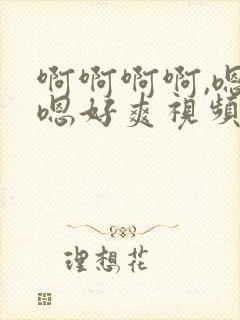 啊啊啊啊,嗯
嗯好爽视频
理想花